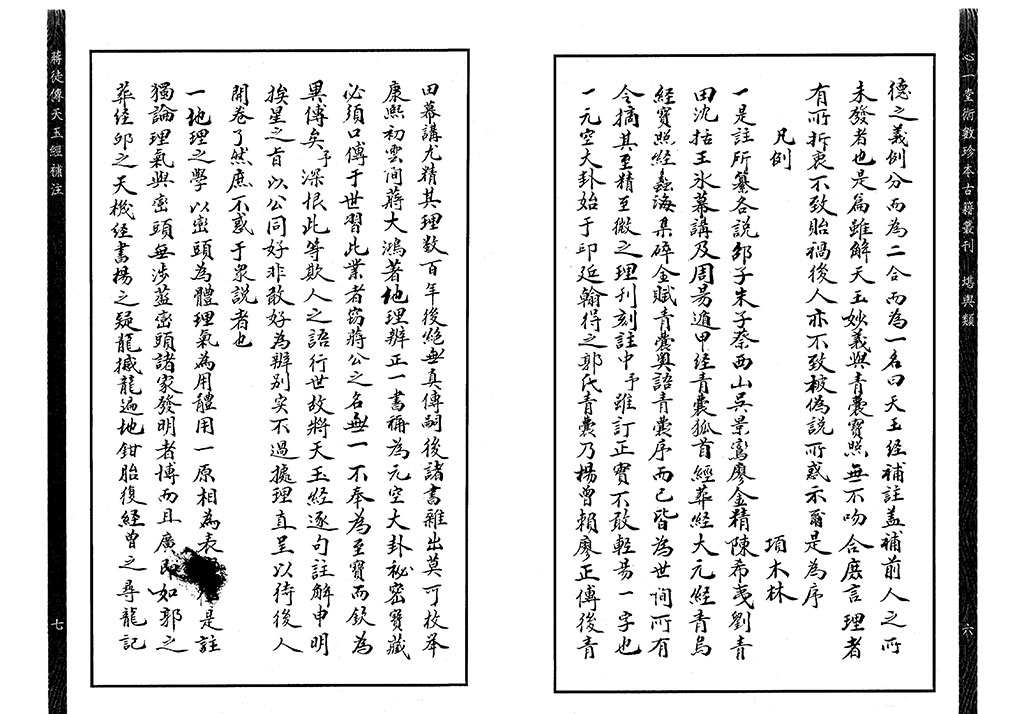 心一堂術數珍本古籍叢刊　堪輿類
六
德之義例分而為二合而為一名曰天玉經補註盖補前人之所
未發者也是篇雖解天玉妙義與青囊寶照無不吻合庶言理者
有所折衷不致貽禍後人亦不致被偽說所惑示爾是為序
項木林
凡例
一是註所纂各說邵子朱子蔡西山吳景鸞廖金精陳希夷劉青
田沈括王氷幕講及周昜遁甲经青囊狐首經葬經大元經青烏
經寶照經蠡海集碎金賦青囊奧語青囊序而已皆為世间所有
今摘其至精至微之理刋刻註中予雖訂正實不敢輕昜一字也
一元空大卦始于邱延翰得之郭氏青囊乃楊曾賴廖正傳後青
蔣徒傳天玉經補注
七
田幕講九精其理数百年後绝無真傳嗣後諸書雜出莫可枚举
康熙初雲间蔣大鴻著地理辨正一書稱為元空大卦祕密寶藏
必須口傳于世習此業者窃蔣公之名無一不奉為至寶而欽為
異傳矣予深恨此等欺人之語行世故將天玉经逐句註解申明
挨星之旨以公同好非敢好為辨别实不過據理直呈以待後人
開卷了然庶不惑于衆說者也
一地理之學以峦頭為體理氣為用體用一原相為表是註
獨論理氣與峦頭無涉蓝峦頭諸家發明者博而且廣即如郭之
葬经邱之天機经書楊之疑龍撼龍遍地钳胎復经曾之尋龍記